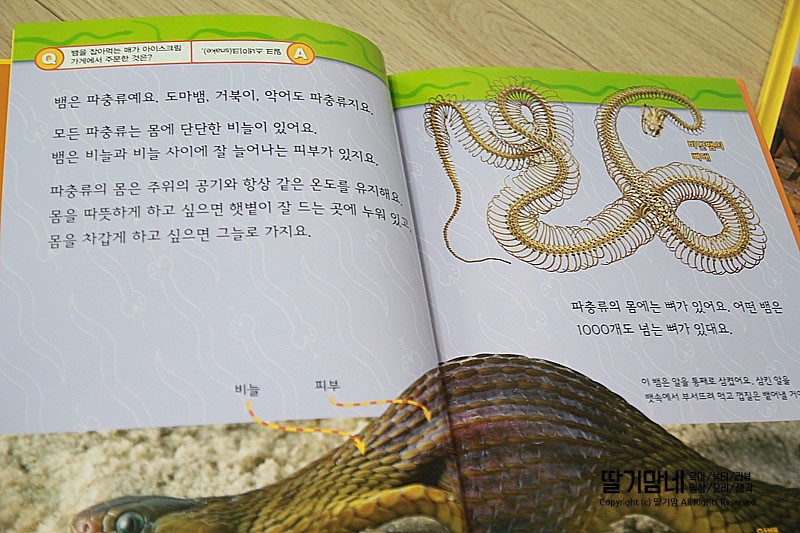 Q
뱀을 잡아먹는 매가 아이스크림
가게에서 주문한 것은?
밀크 스네이크(snake).
A
뱀은 파충류예요. 도마뱀, 거북이, 악어도 파충류지요.
모든 파충류는 몸에 단단한 비늘이 있어요.
뱀은 비늘과 비늘 사이에 잘 늘어나는 피부가 있지요.
파충류의 몸은 주위의 공기와 항상 같은 온도를 유지해요.
몸을 따뜻하게 하고 싶으면 햇볕이 잘 드는 곳에 누워 있고,
몸을 차갑게 하고 싶으면 그늘로 가지요.
비늘
피부
뼈대
파충류의 몸에는 뼈가 있어요. 어떤 뱀은
1000개도 넘는 뼈가 있대요.
이 뱀은 알을 통째로 삼켰어요. 삼킨 알을
뱃속에서 부서뜨려 먹고 껍질은 뱉어낼
딸기맘네
육아/뷰티/리뷰
일상/요리/생각
Copyright (c) 딸기맘 All Rights Reserved.